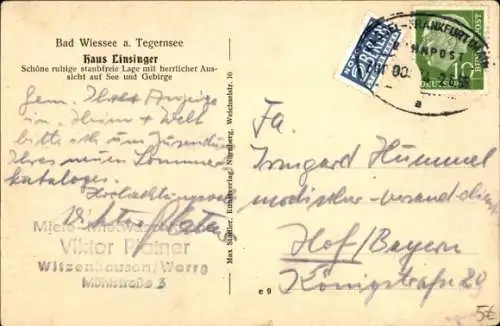 Bad Wiessee a. Tegernsee
Haus Linsinger
Schöne ruhige staubfreie Lage mit herrlicher Aus-
sicht auf See und Gebirge
Gem. Ihrer Anzeige
in "Heim + Welt"
bitte ich um Zusendung
Ihres neuen Sommer-
kataloges.
Hochachtungsvoll
Viktor Platner
Viktor Platner
Witzenhausen/Werra
Mühlstraße 3
Max Stadler, Kunstverlag, Nürnberg,
e 9
NOTOPFER
2 BERLIN
STEUERMARKE
FRANKFURT
BAHNPOST
a
10
DEUTSCHE
BUNDESPOST
Fa.
Irmgard Hummel
modischer-versand
Hof/Bayern
Königstraße 29
5€